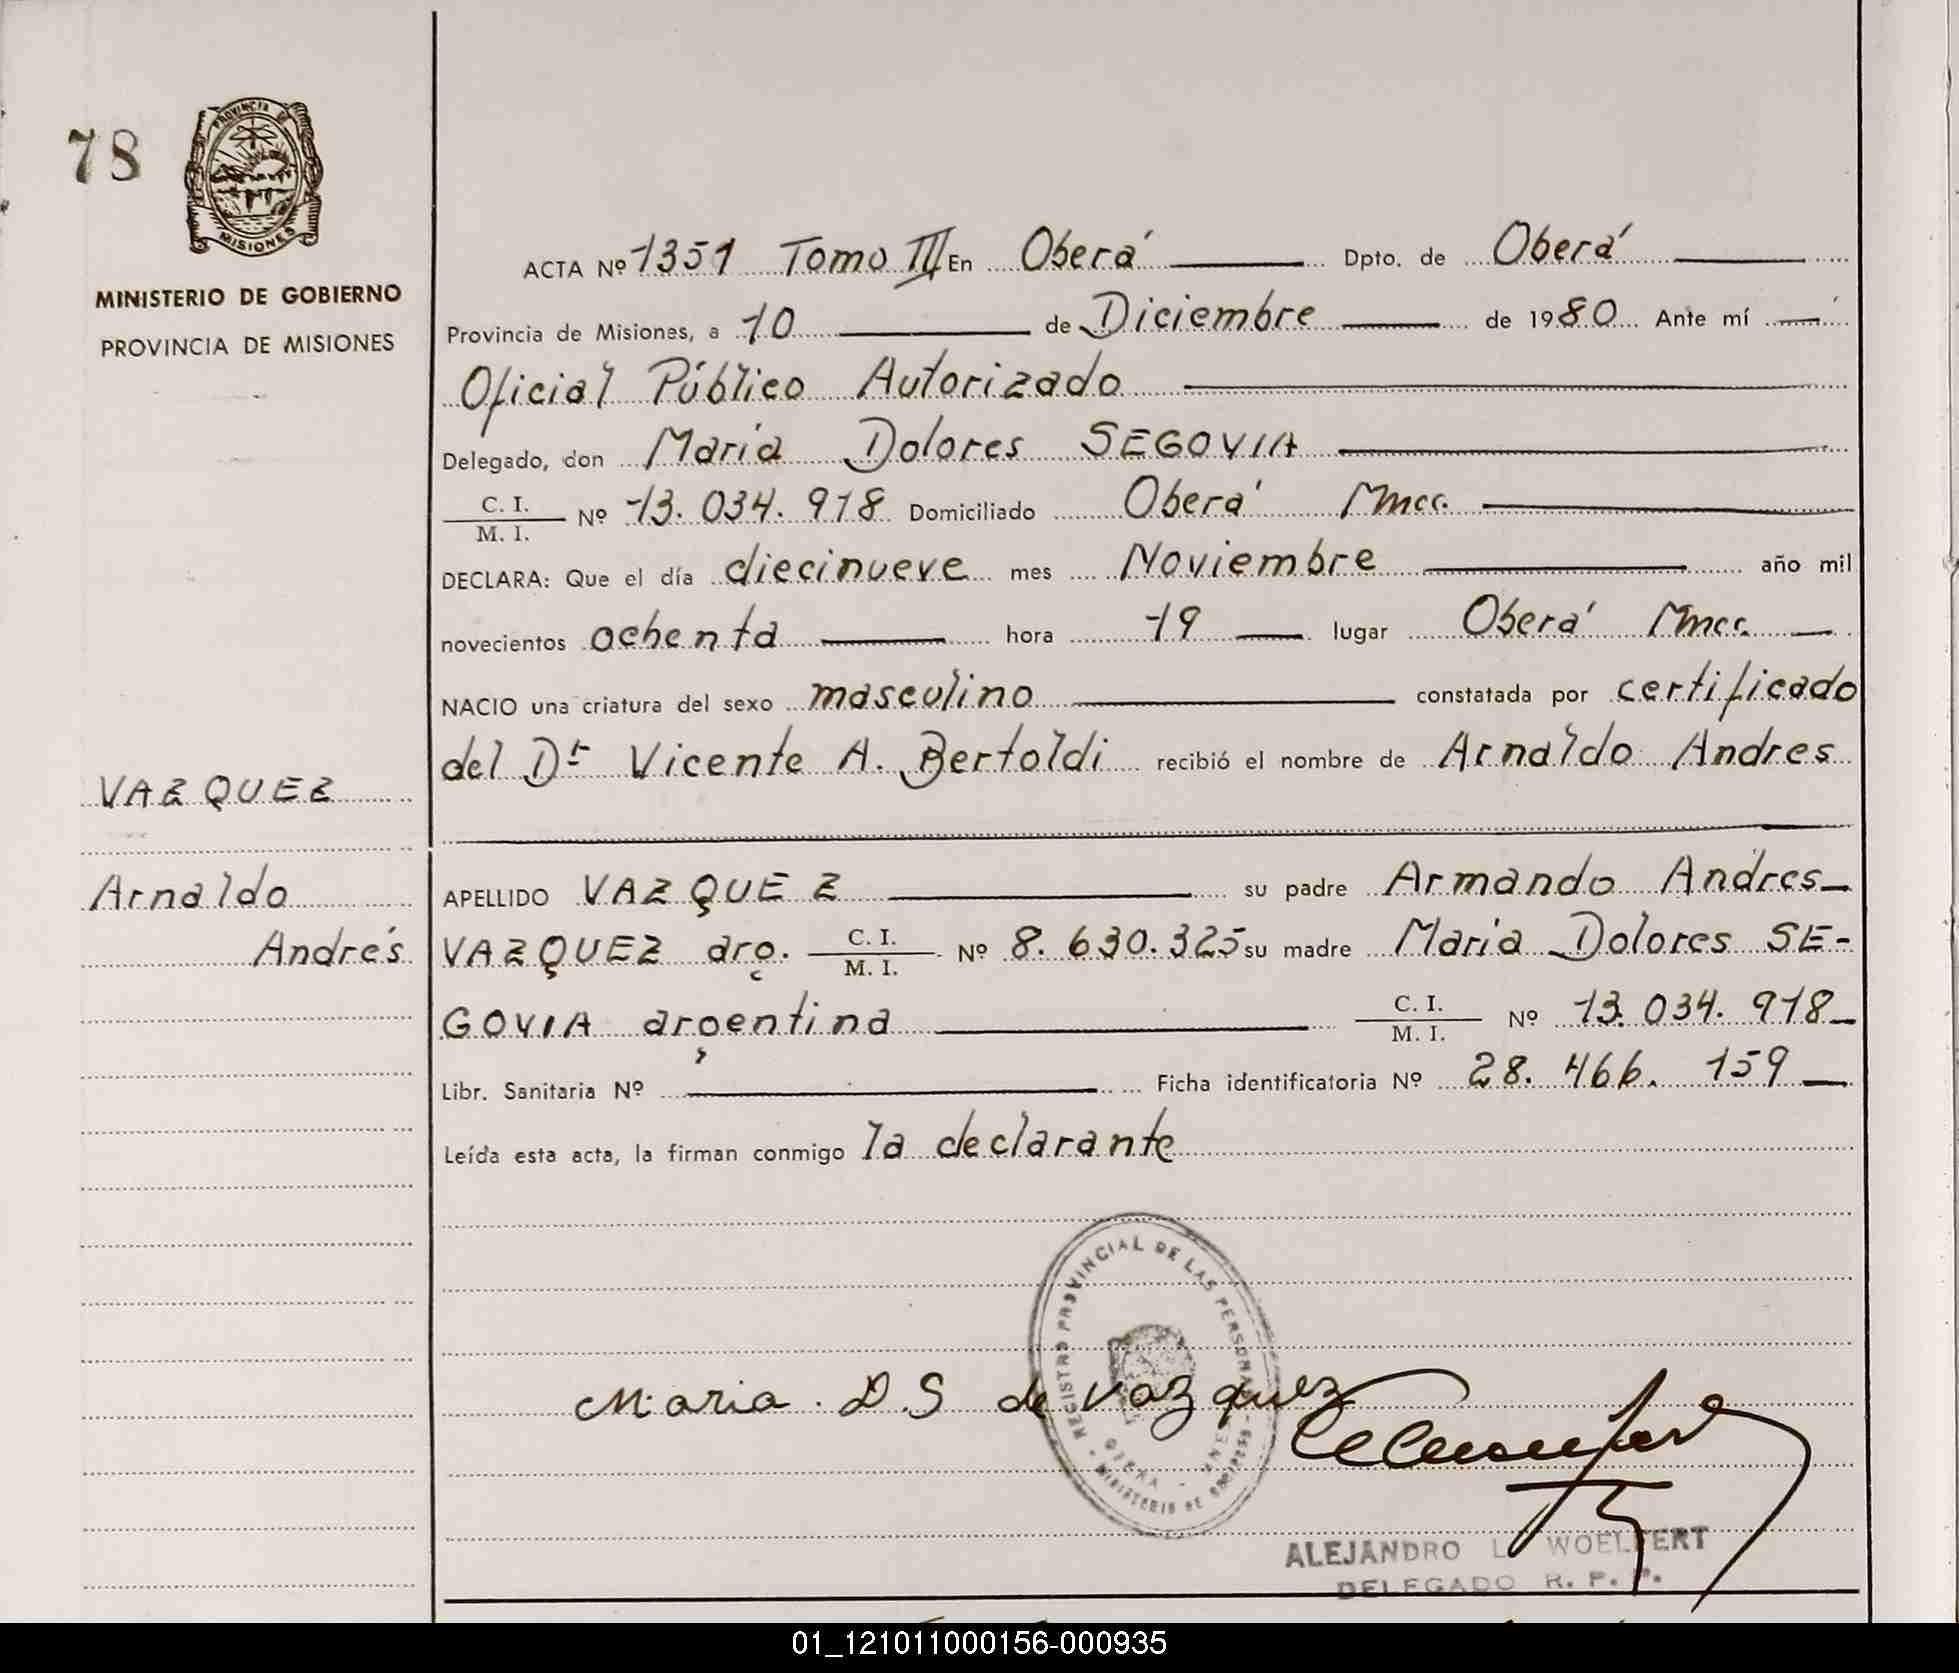 78
PROVINCIA DE
MISIONES
MINISTERIO DE GOBIERNO
PROVINCIA DE MISIONES
VAZQUEZ
Arnaldo
Andrés
ACTA Nº 1351 Tomo III En Oberá Dpto. de Oberá
Provincia de Misiones, a 10 de Diciembre de 1980 Ante mí
Oficial Público Autorizado
Delegado, don Maria Dolores SEGOVIA
C. I.
M. I. Nº 13.034.918 Domiciliado Oberá Mnes.
DECLARA: Que el día diecinueve mes Noviembre año mil
novecientos ochenta hora 19 lugar Oberá Mnes.
NACIO una criatura del sexo masculino constatada por certificado
del Dr Vicente A. Bertoldi recibió el nombre de Arnaldo Andres
APELLIDO VAZQUEZ su padre Armando Andres
VAZQUEZ arg. C. I. M. I. Nº 8.630.325 su madre Maria Dolores SE-
GOVIA argentina C. I. M. I. Nº 13.034.918
Libr. Sanitaria Nº Ficha identificatoria Nº 28.466.159
Leída esta acta, la firman conmigo la declarante
REGISTRO PROVINCIAL DE LAS PERSONAS
OBERA
MINISTERIO DE
Maria. D.S de Vazquez
ALEJANDRO L. WOELFERT
DELEGADO R. P. P.
01_121011000156-000935